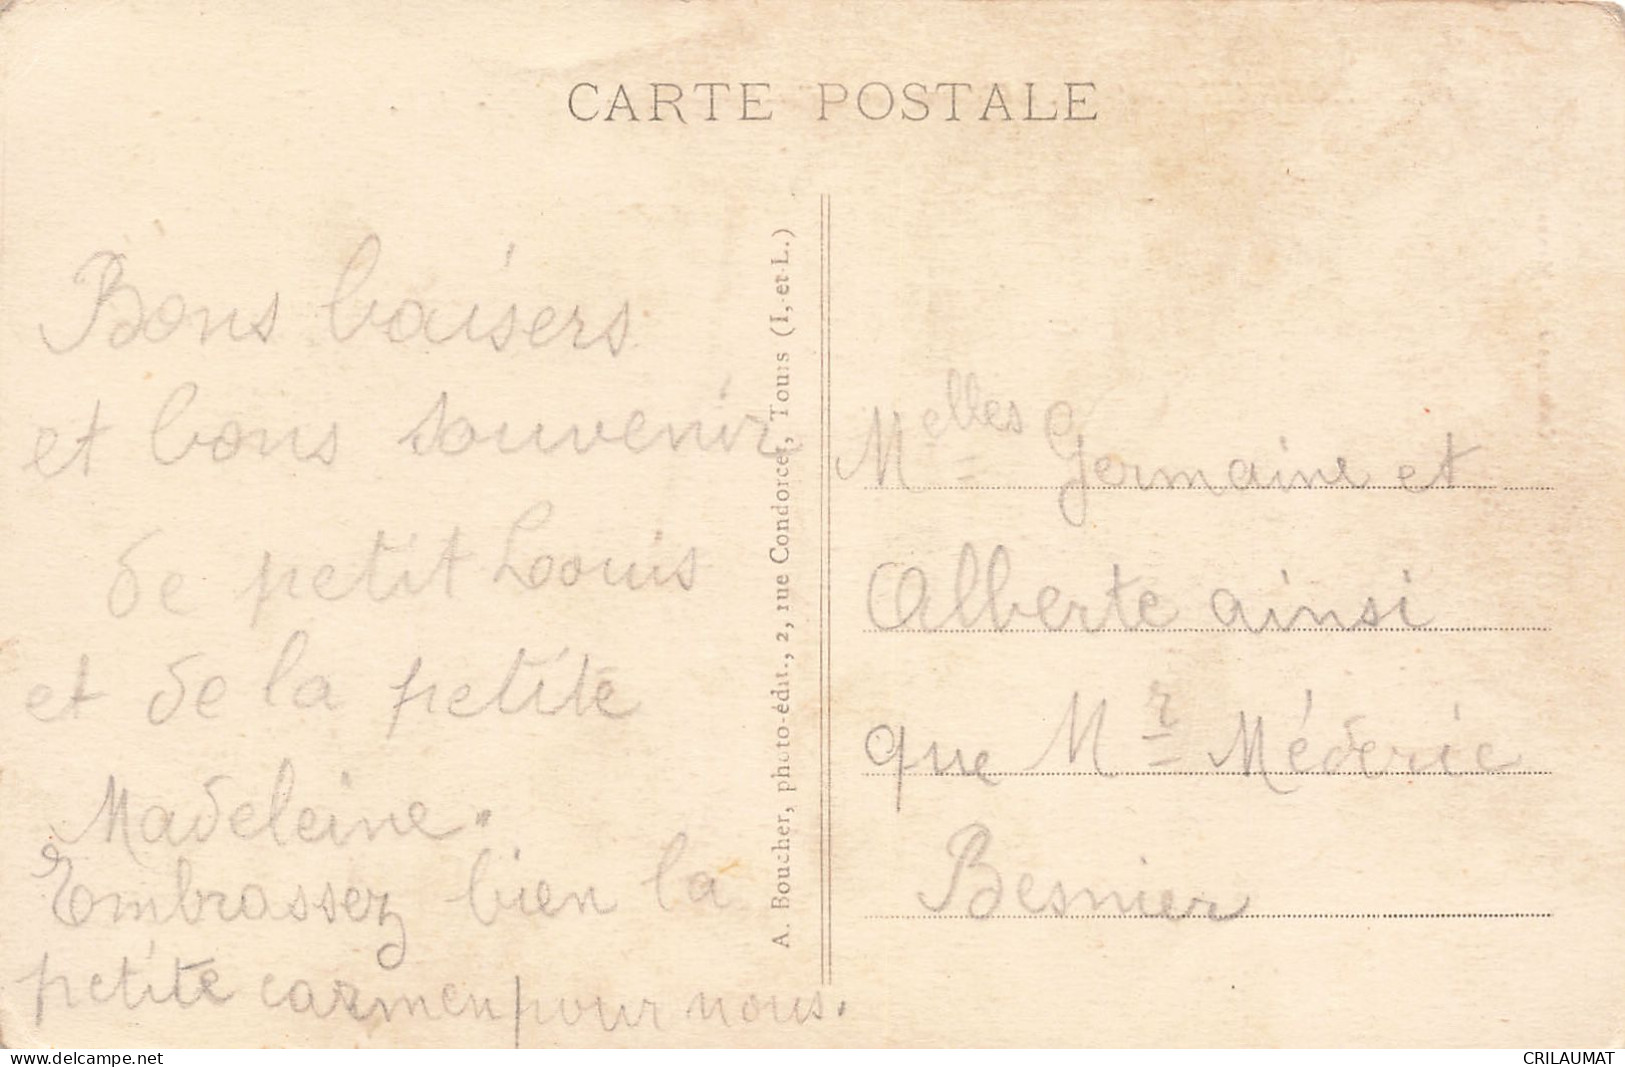 CARTE POSTALE
Bons baisers
et bons souvenir
de petit Louis
et de la petite
Madeleine.
Embrassez bien la
petite carmen pour nous.
A. Boucher, photo-édit., 2, rue Condorcet, Tours (I.-et-L.)
Melles Germaine et
Alberte ainsi
que Mr Méderic
Besnier
www.delcampe.net
CRILAUMAT